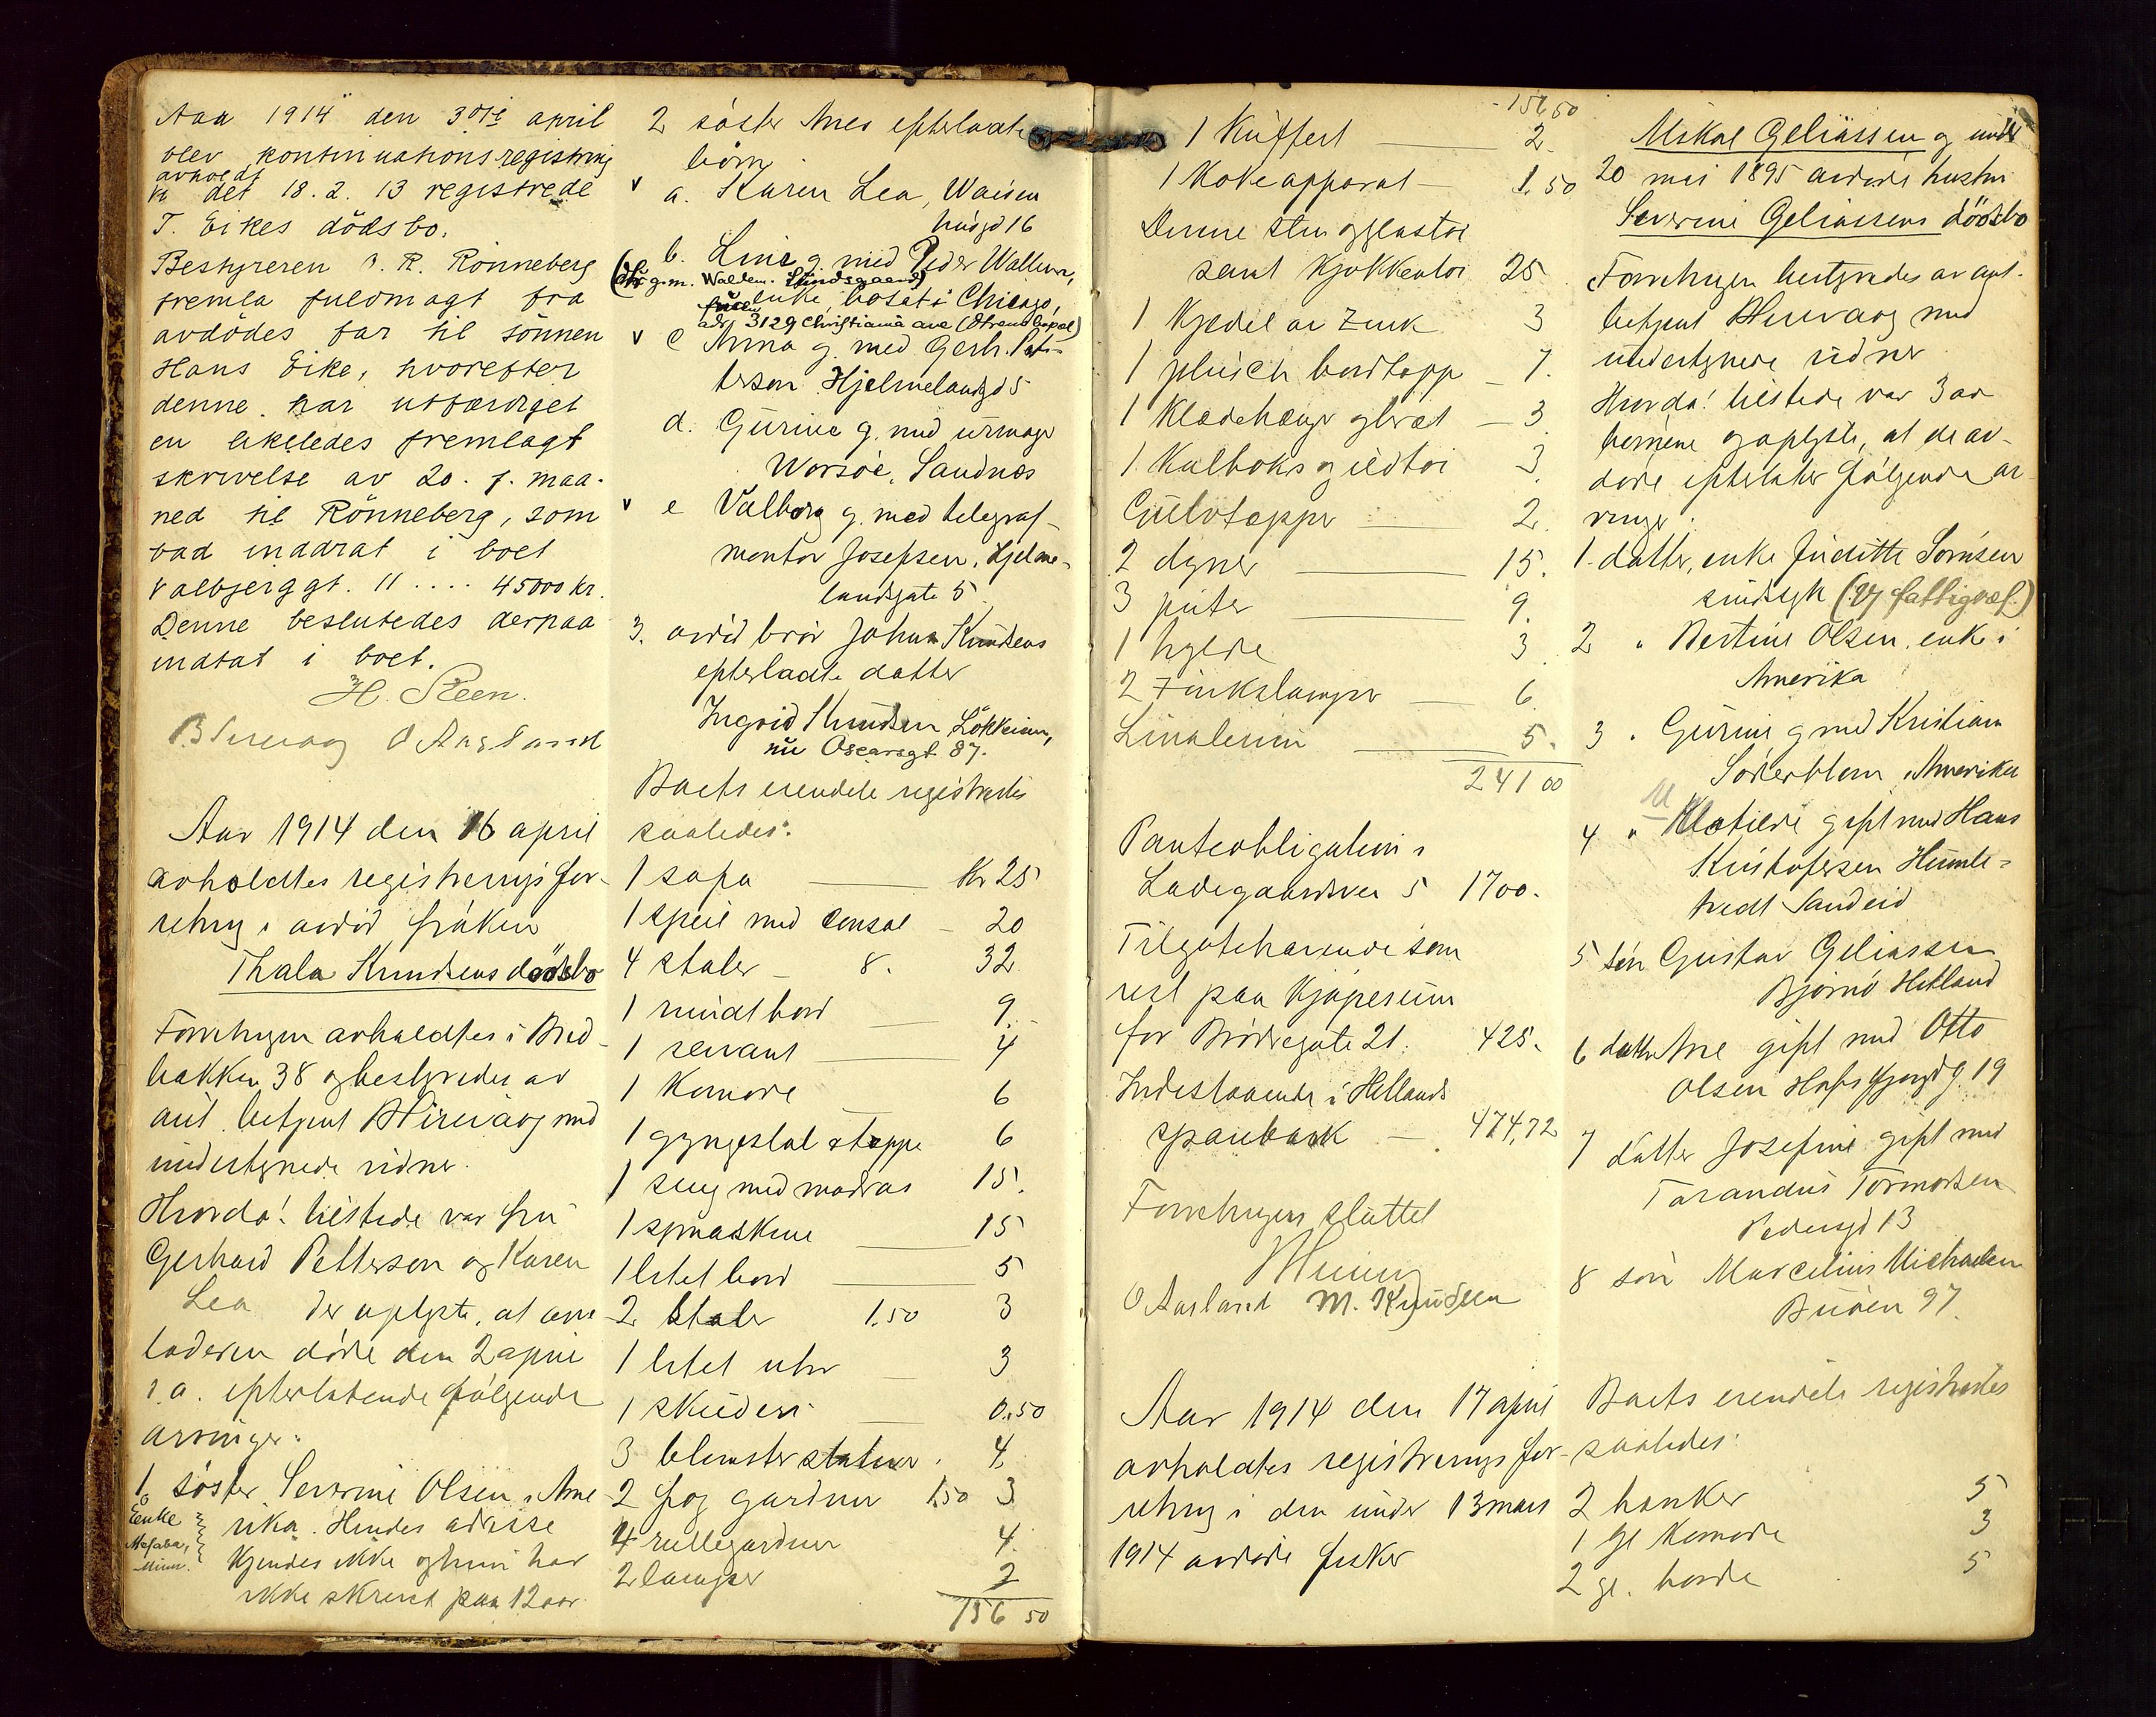 Aar 1914 den 30te april
blev kontinuationsregistring
avholdt
i det 18.2.13 registrede
T. Eikes dödsbo.
Bestyreren O. R. Rönneberg
fremla fuldmagt fra
avdödes far til sönnen
Hans Eike, hvorefter
denne har utfærdiget
en likeledes fremlagt
skrivelse av 20. f. maa-
ned til Rönneberg, som
bad inddrat i boet
Valbjerggt. 11 .... 45000 kr.
Denne beslutedes derpaa
indtat i boet.
H. Steen.
O Aasland
Aar 1914 den 16 april
avholdtes registreringsfor-
retning i avdöd fröken
Thala Knudsens dödsbo
Forretningen avholdtes i Bred-
bakken 38 og bestyredes av
aut. betjent B Hirevaag med
undertegnede vidner.
Hvorda! tilstede var fru
Gerhard Petterson og Karen
Lea der oplyste, at av-
döde döde den 2 april
d.a. efterlatende fölgende
arvinger:
1. söster Severine Olsen, Ame-
rika. Hendes adresse
kjendes ikke og hun har
ikke skrevet paa 12 aar
Enke
Minn.
2 söster Anes efterladte
börn
v a. Karen Lea, Waisen
husgd 16
b. Line g. med Peder Wallum,
g.m. Waldem. Lundsgaard
enke, bosat i Chicago,
adr 3129 Christiana ave
v c Anna g. med Gerh. Pet-
terson. Hjelmelandsgd 5
d. Gurine g. med urmager
Worsöe, Sandnes
v e Valborg g. med telegraf-
montör Josefsen, Hjelme-
landsgate 5
3. avdöd bror Johan Knudsens
efterladte datter
Ingrid Knudsen Lökkeveien,
nu Oscarsgt 87.
Boets eiendele registredes
saaledes:
1 sofa Kr 25
1 speil med consol - 20
4 stoler - 8. 32
1 rundt bord 9.
1 servant 4
1 Komode 6
1 gyngestol & teppe 6
1 seng med madras 15.
1 symaskine 15
1 litet bord 5
2 stoler 1.50 3
1 litet uhr 3
1 skilderi 0.50
3 blomsterstativer 4
2 fag gardiner 1.50 3
4 rullegardiner 4.
2 lamper 2
156 50
156.50
1 Kuffert 2.
1 Kokeapparat 1.50
Denne sten og glastöi
samt kjøkkentöi 25
1 Kjedel av Zink 3
1 plüsch bordtepp 7.
1 Klædehænger & bræt 3
1 Kulboks og ildtöi 3
Gulvtepper 2.
2 dyner 15.
3 puter 9.
1 hylde 3.
2 Zinkstamper 6
Linoleum 5.
241 00
Panteobligation i
Ladegaardsvei 5 1700.
Tilgodehavende som
rest paa kjöpesum
for Brödregate 21. 425.
Indestaaende i Hetlands
sparebank 474,72
Forretningen sluttet
O Aasland M. Knudsen
Aar 1914 den 17 april
avholdtes registreringsfor-
retning i den under 13 mars
1914 avdöde fisker
Mikal Geliassen og under
20 mai 1895 avdøde hustru
Severine Geliassens dödsbo
Forretningen bestyredes av aut.
betjent B Hirevaag med
undertegnede vidner
Hvorda! tilstede var 3 av
børnene og oplyste, at de av-
døde efterlater følgende ar-
vinger:
1. datter, enke Juditte Sörnsen
sindssyk (Vg fattigvæs.)
2 " Bertine Olsen, enke i
Amerika
3 " Gurine g med Kristian
Söderblom, Amerika
4 " Klotilde gift med Hans
Kristofersen Humle-
tvedt Sandeid
5 sön Gustav Geliassen
Björnö Hetland
6 datter Ane gift med Otto
Olsen Hafrsfjordg. 19
7 datter Josefine gift med
Tarandus Tormodsen
Pedersgd 13
8 sön Marcelius Michaelsen
Buöen 97.
Boets eiendele registredes
saaledes:
2 bænker 5
1 gl Komode 3
2 gl. borde 5